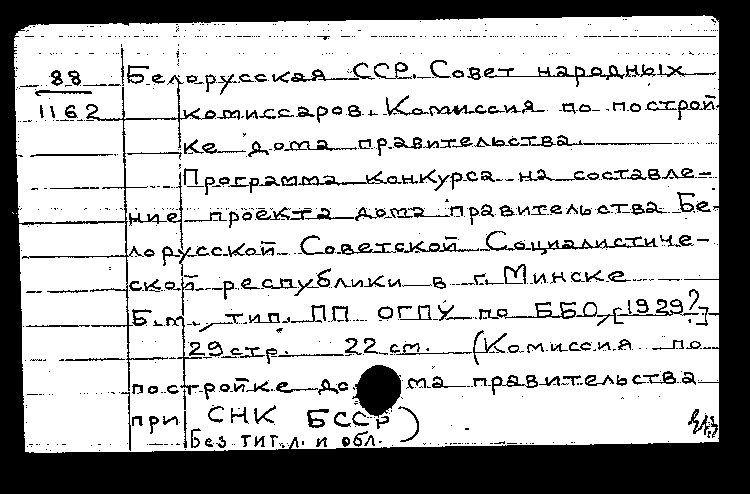 88 Белорусская ССР. Совет народных
1162 комиссаров. Комиссия по построй-
ке дома правительства.
Программа конкурса на составле-
ние проекта дома правительства Бе-
лорусской Советской Социалистиче-
ской республики в г. Минске
Б.м., тип. ПП ОГПУ по ББО, [1929?]
29 стр. 22 см. (Комиссия по
постройке до ма правительства
при СНК БССР)
Без тит.л. и обл.